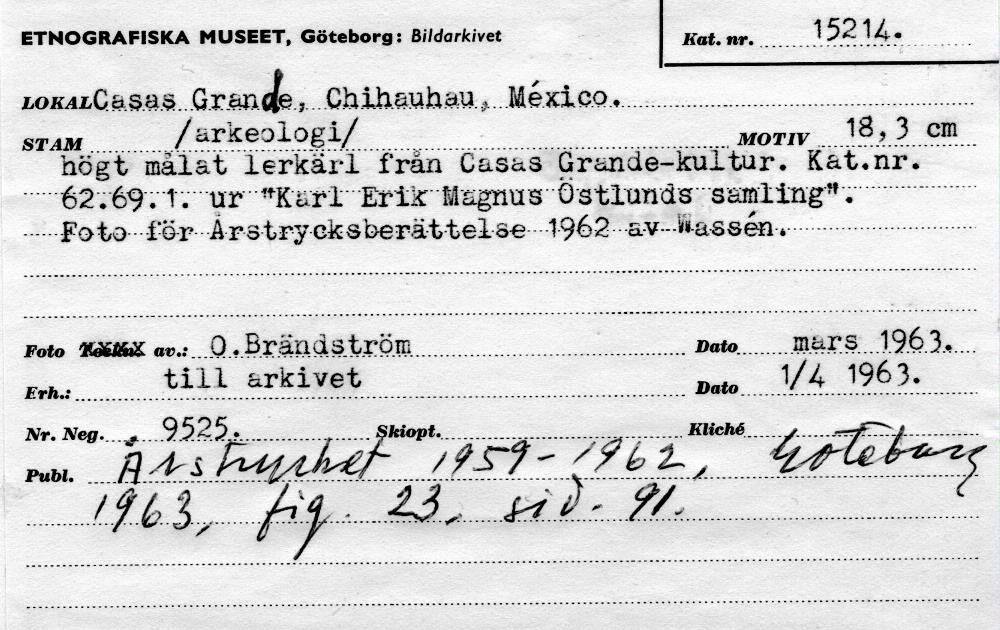 ETNOGRAFISKA MUSEET, Göteborg: Bildarkivet
Kat. nr. 15214.
LOKAL Casas Grande, Chihauhau, México.
STAM /arkeologi/ MOTIV 18,3 cm
högt målat lerkärl från Casas Grande-kultur. Kat.nr.
62.69.1. ur "Karl Erik Magnus Östlunds samling".
Foto för Årstrycksberättelse 1962 av Wassén.
Foto av.: O.Brändström Dato mars 1963.
Erh.: till arkivet Dato 1/4 1963.
Nr. Neg. 9525. Skiopt. Kliché
Publ. Årstrycket 1959-1962, Göteborg
1963, fig. 23, sid. 91.